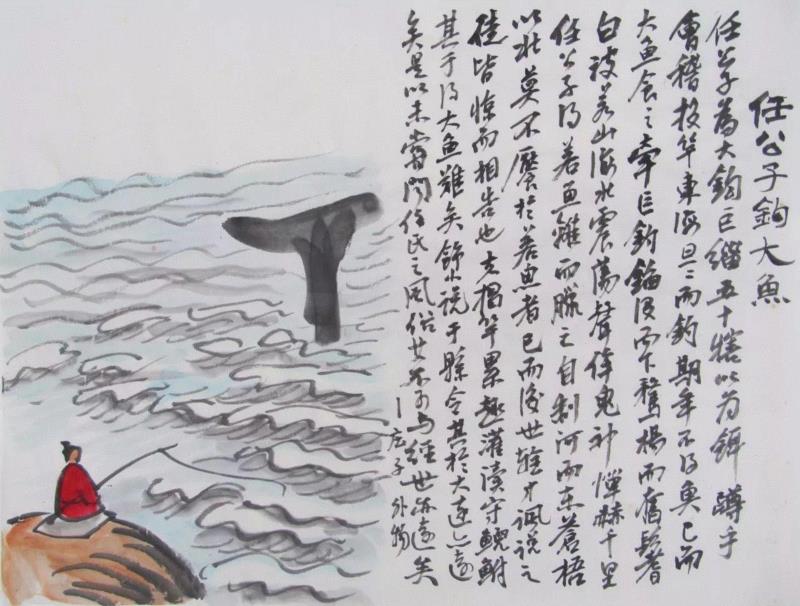 任公子釣大魚
任公子為大鈎巨緇五十犗以為餌蹲乎
會稽投竿東海旦〻而釣期年不得魚已而
大魚食之牽巨鈎錎沒而下騖揚而奮鬐
白波若山海水震蕩聲侔鬼神憚赫千里
任公子得若魚離而腊之自制河而東蒼梧
以北莫不厭於若魚者已而後世輇才諷說之
徒皆惊而相告也夫揭竿累趣灌瀆守鯢鮒
其于得大魚難矣飾小說于縣令其於大達亦遠
矣是以未嘗聞任氏之風俗其不可与經世亦遠矣
—庄子外物